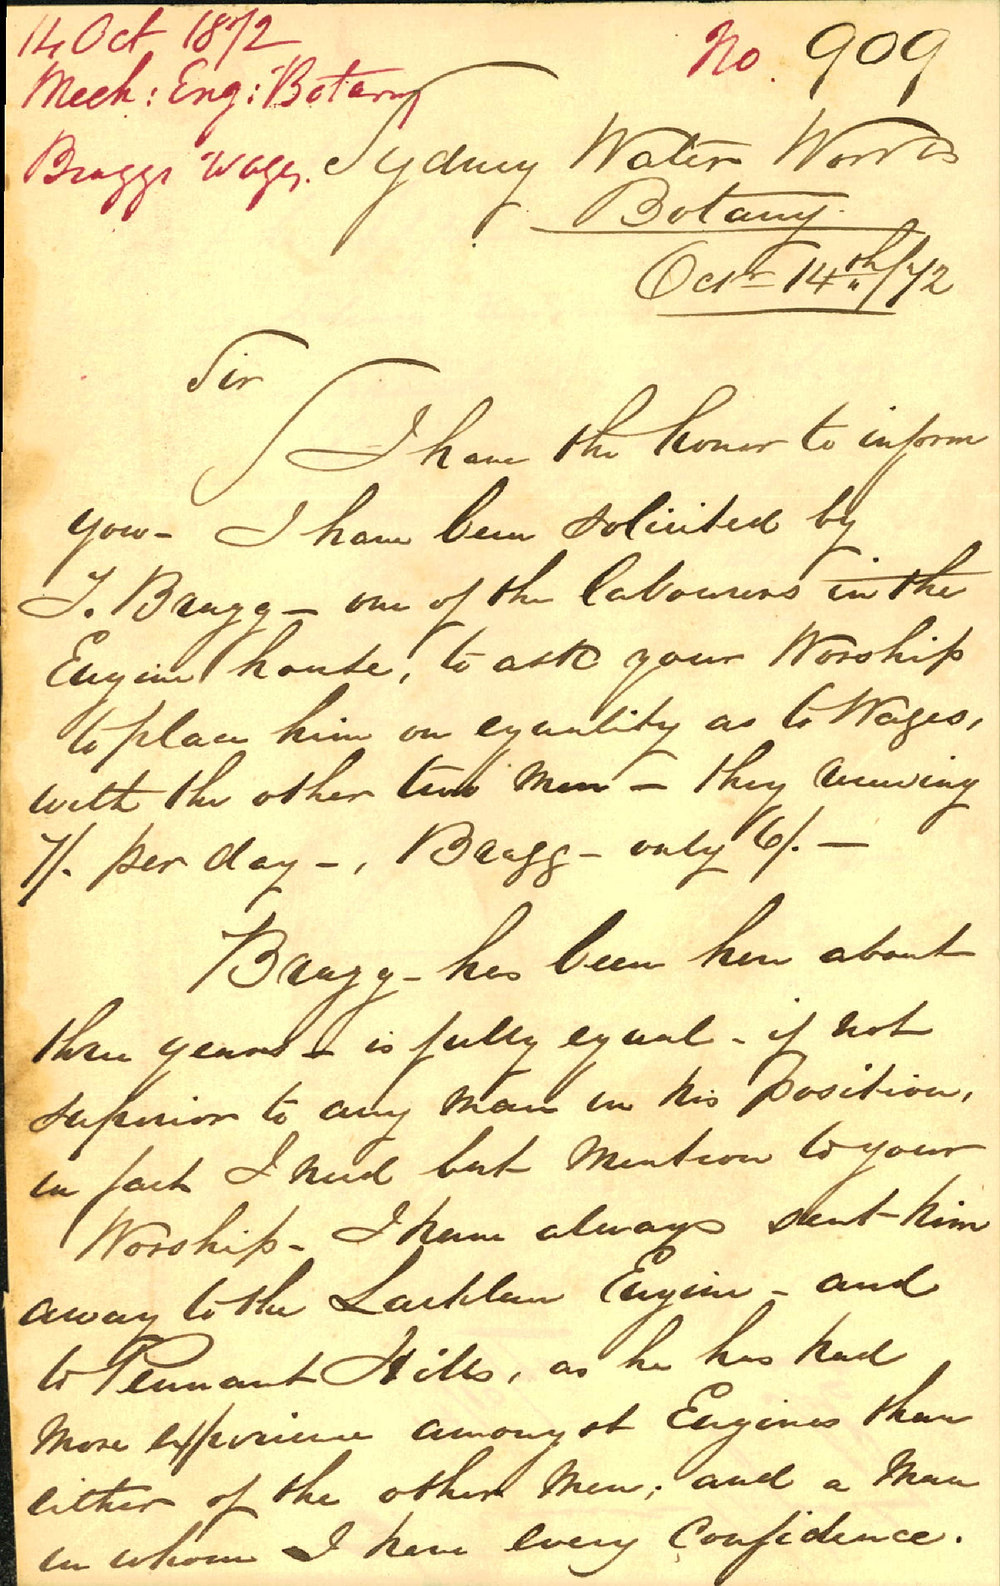 14 Oct 1872
No. 909
Mech: Eng: Botany
Braggs Wages.
Sydney Water Works
Botany.
Octr 14th/72
Sir
I have the honor to inform
you - I have been solicited by
T. Bragg - one of the labourers in the
Engine house, to ask your Worship
to place him on equality as to Wages,
with the other two men - they receiving
7/. per day -, Bragg - only 6/. -
Bragg - has been here about
three years - is fully equal - if not
superior to any man in his position,
in fact I need but mention to your
Worship - I have always sent him
away to the Lachlan Engine - and
to Pennant Hills, as he has had
more experience amongst Engines than
either of the other men; and a man
in whom I have every confidence.